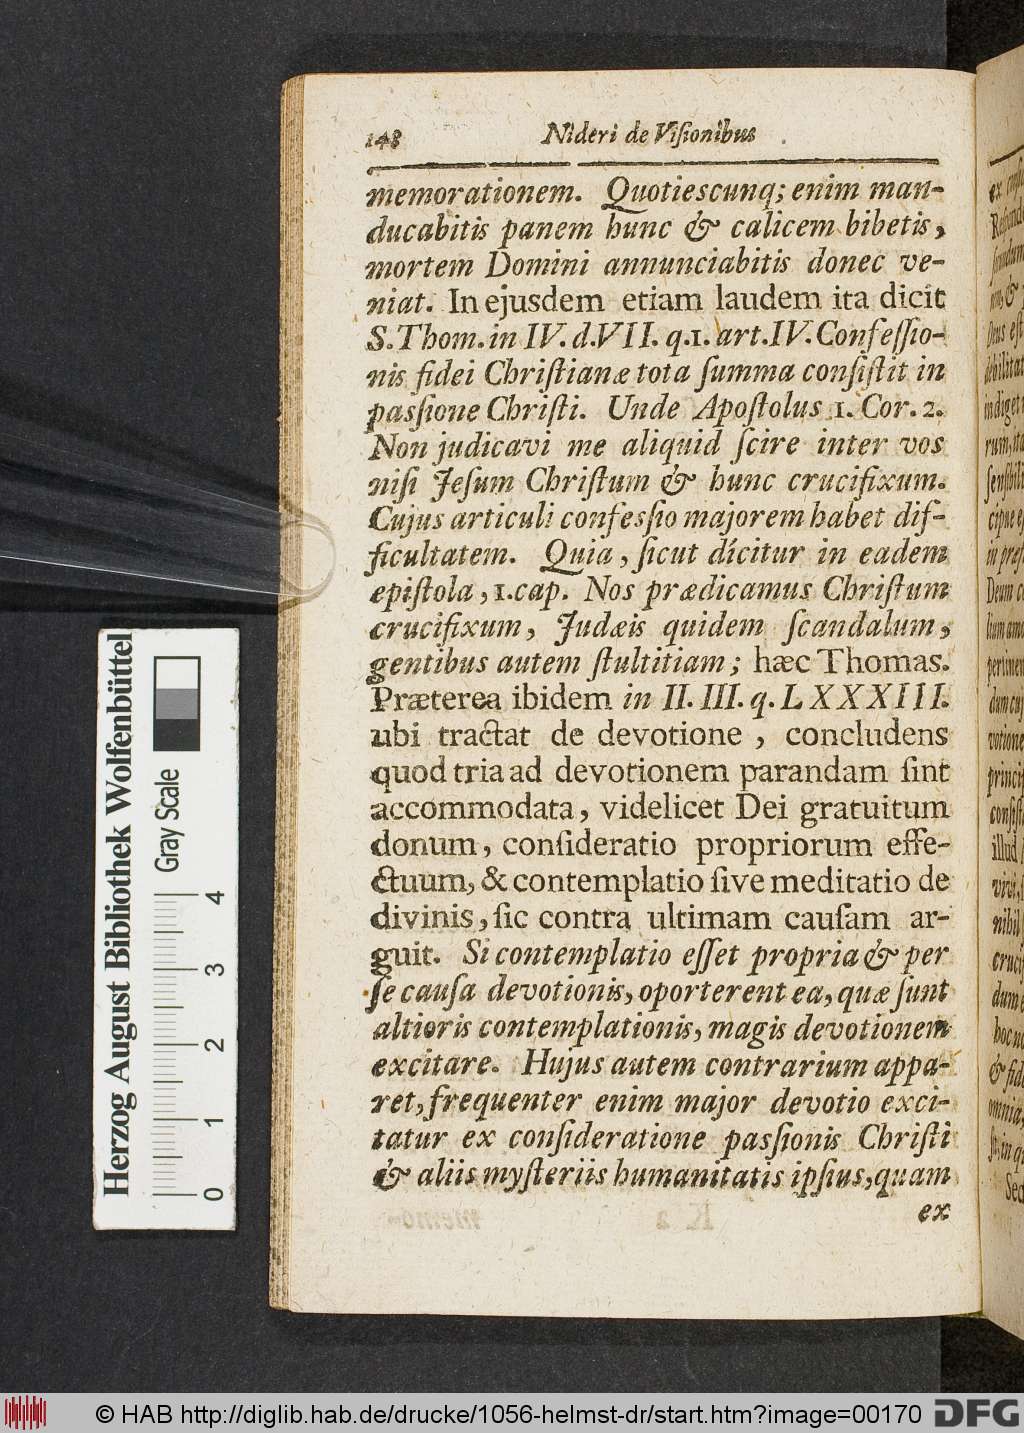 148 Nideri de Viſionibus
memorationem. Quotiescunq; enim man-
ducabitis panem hunc & calicem bibetis,
mortem Domini annunciabitis donec ve-
niat. In ejusdem etiam laudem ita dicit
S. Thom. in IV. d. VII. q. 1. art. IV. Confeſſio-
nis fidei Chriſtianæ tota ſumma conſiſtit in
paſſione Chriſti. Unde Apoſtolus 1. Cor. 2.
Non judicavi me aliquid ſcire inter vos
niſi Jeſum Chriſtum & hunc crucifixum.
Cujus articuli confeſſio majorem habet dif-
ficultatem. Quia, ſicut dicitur in eadem
epiſtola, 1. cap. Nos prædicamus Chriſtum
crucifixum, Judæis quidem ſcandalum,
gentibus autem ſtultitiam; hæc Thomas.
Præterea ibidem in II. III. q. LXXXIII.
ubi tractat de devotione, concludens
quod tria ad devotionem parandam ſint
accommodata, videlicet Dei gratuitum
donum, conſideratio propriorum effe-
ctuum, & contemplatio ſive meditatio de
divinis, ſic contra ultimam cauſam ar-
guit. Si contemplatio eſſet propria & per
ſe cauſa devotionis, oporterent ea, quæ ſunt
altioris contemplationis, magis devotionem
excitare. Hujus autem contrarium appa-
ret, frequenter enim major devotio exci-
tatur ex conſideratione paſſionis Chriſti
& aliis myſteriis humanitatis ipſius, quam
ex
Herzog August Bibliothek Wolfenbüttel
Gray Scale
0 1 2 3 4
© HAB http://diglib.hab.de/drucke/1056-helmst-dr/start.htm?image=00170 DFG